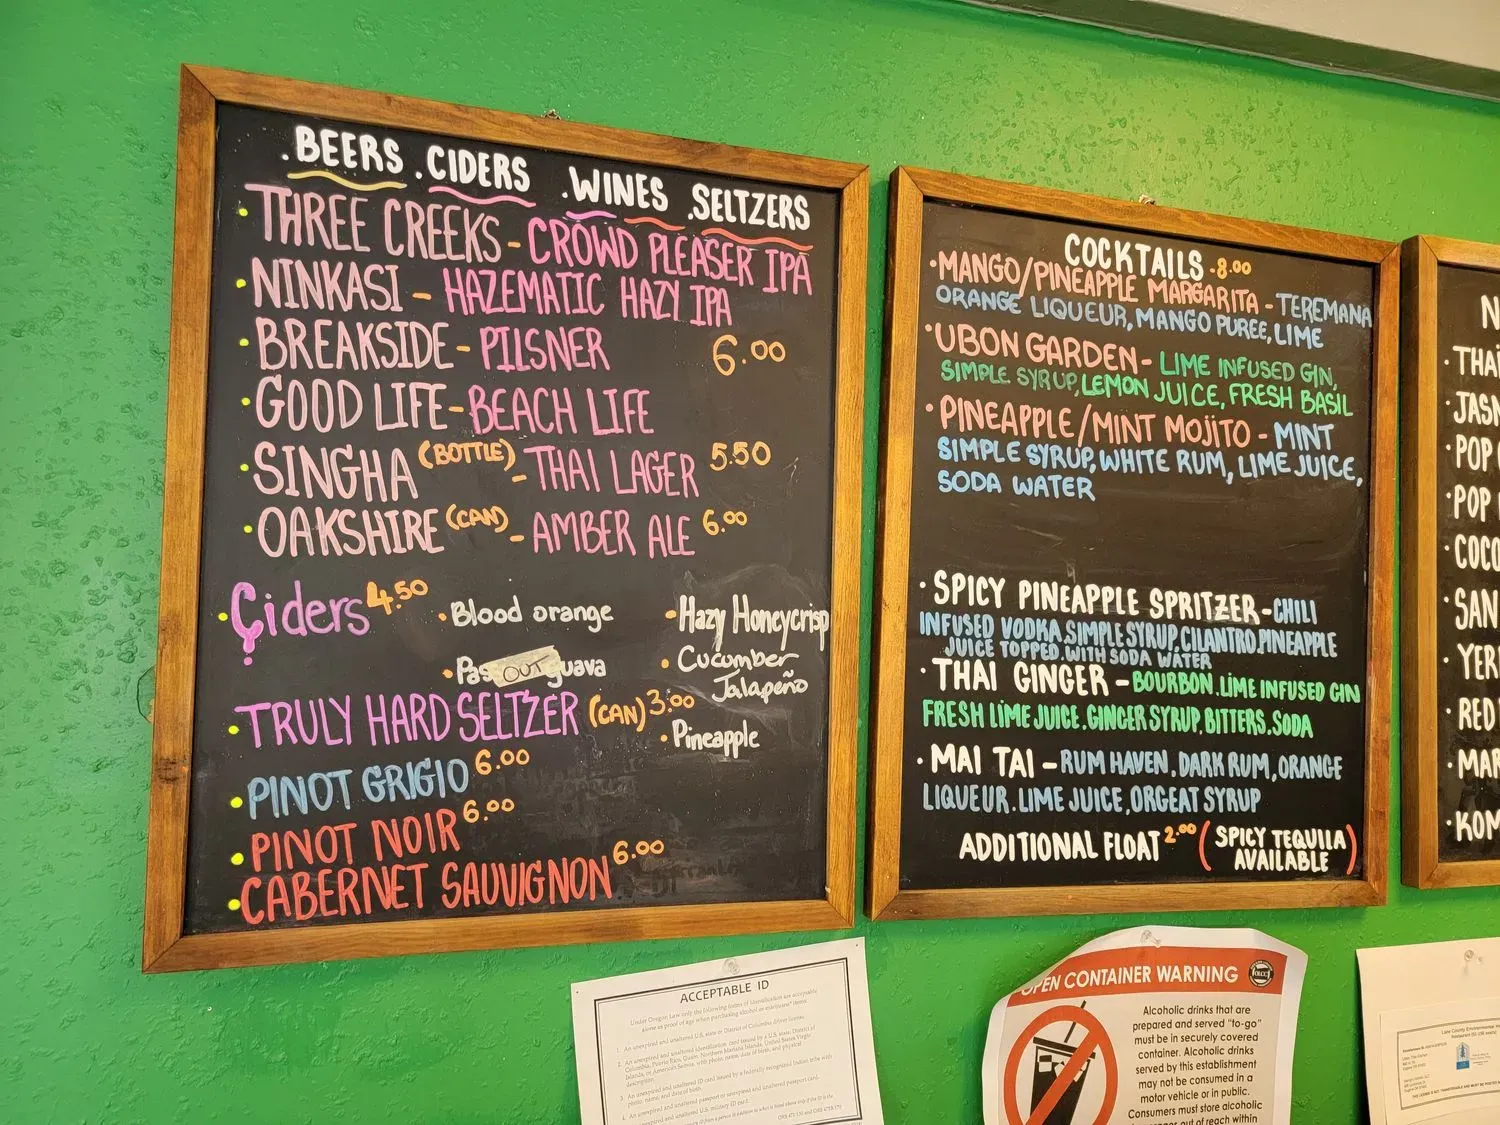 .BEERS .CIDERS .WINES .SELTZERS
• THREE CREEKS - CROWD PLEASER IPA
• NINKASI - HAZEMATIC HAZY IPA
• BREAKSIDE - PILSNER 6.00
• GOOD LIFE - BEACH LIFE
• SINGHA (BOTTLE) - THAI LAGER 5.50
• OAKSHIRE (CAN) - AMBER ALE 6.00
• Ciders 4.50 • Blood orange • Hazy Honeycrisp
• Pas OUT guava • Cucumber
Jalapeño
• TRULY HARD SELTZER (CAN) 3.00
• Pineapple
• PINOT GRIGIO 6.00
• PINOT NOIR 6.00
• CABERNET SAUVIGNON 6.00
COCKTAILS - 8.00
• MANGO/PINEAPPLE MARGARITA - TEREMANA
ORANGE LIQUEUR, MANGO PUREE, LIME
• UBON GARDEN - LIME INFUSED GIN,
SIMPLE SYRUP, LEMON JUICE, FRESH BASIL
• PINEAPPLE/MINT MOJITO - MINT
SIMPLE SYRUP, WHITE RUM, LIME JUICE,
SODA WATER
• SPICY PINEAPPLE SPRITZER - CHILI
INFUSED VODKA, SIMPLE SYRUP, CILANTRO, PINEAPPLE
JUICE TOPPED. WITH SODA WATER
• THAI GINGER - BOURBON. LIME INFUSED GIN
FRESH LIME JUICE. GINGER SYRUP, BITTERS. SODA
• MAI TAI - RUM HAVEN, DARK RUM, ORANGE
LIQUEUR. LIME JUICE, ORGEAT SYRUP
ADDITIONAL FLOAT 2.00 (SPICY TEQUILA
AVAILABLE)
N
• THAI
• JASM
• POP
• POP
• COCO
• SAN
• YER
• RED
• MAR
• KOM
ACCEPTABLE ID
Under Oregon Law only the following forms of identification are acceptable
alone as proof of age when purchasing alcohol or marijuana items
1. An unexpired and unaltered U.S. state or District of Columbia driver license.
OPEN CONTAINER WARNING
OLCC
Alcoholic drinks that are
prepared and served "to-go"
must be in securely covered
container. Alcoholic drinks
served by this establishment
may not be consumed in a
motor vehicle or in public.
Consumers must store alcoholic
out of reach within